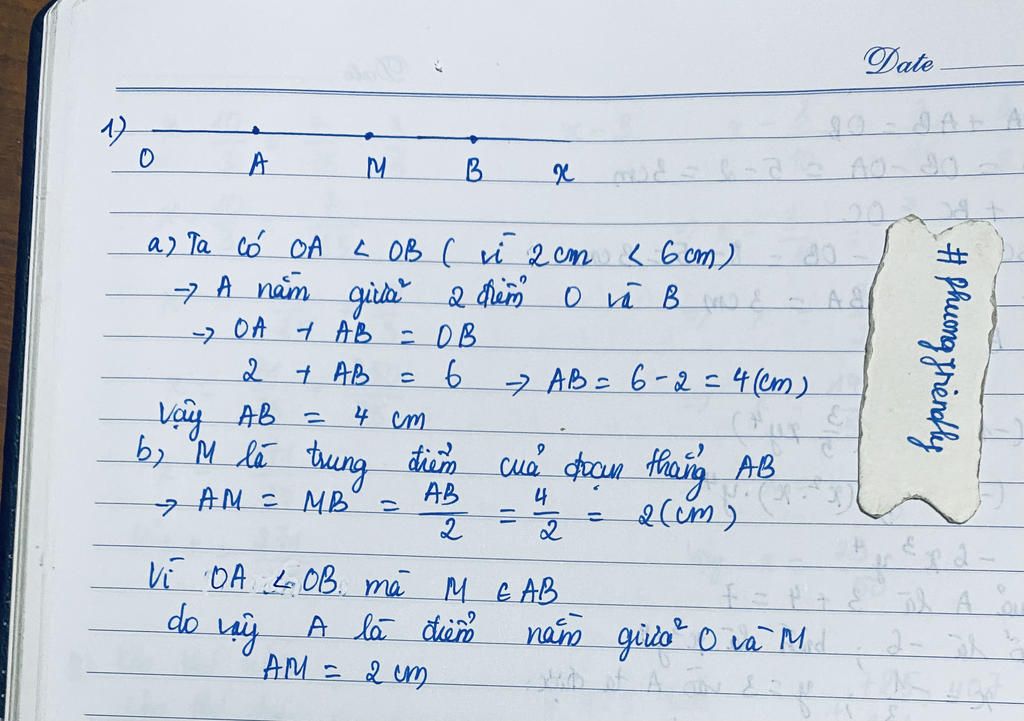 Date
1)
O A M B x
a) Ta có OA < OB ( vì 2 cm < 6 cm)
→ A nằm giữa 2 điểm O và B
→ OA + AB = OB
2 + AB = 6 → AB = 6 - 2 = 4 (cm)
Vậy AB = 4 cm
b) M là trung điểm của đoạn thẳng AB
→ AM = MB = AB/2 = 4/2 = 2 (cm)
Vì OA < OB mà M ∈ AB
do vậy A là điểm nằm giữa O và M
AM = 2 cm
# phuongfriendly